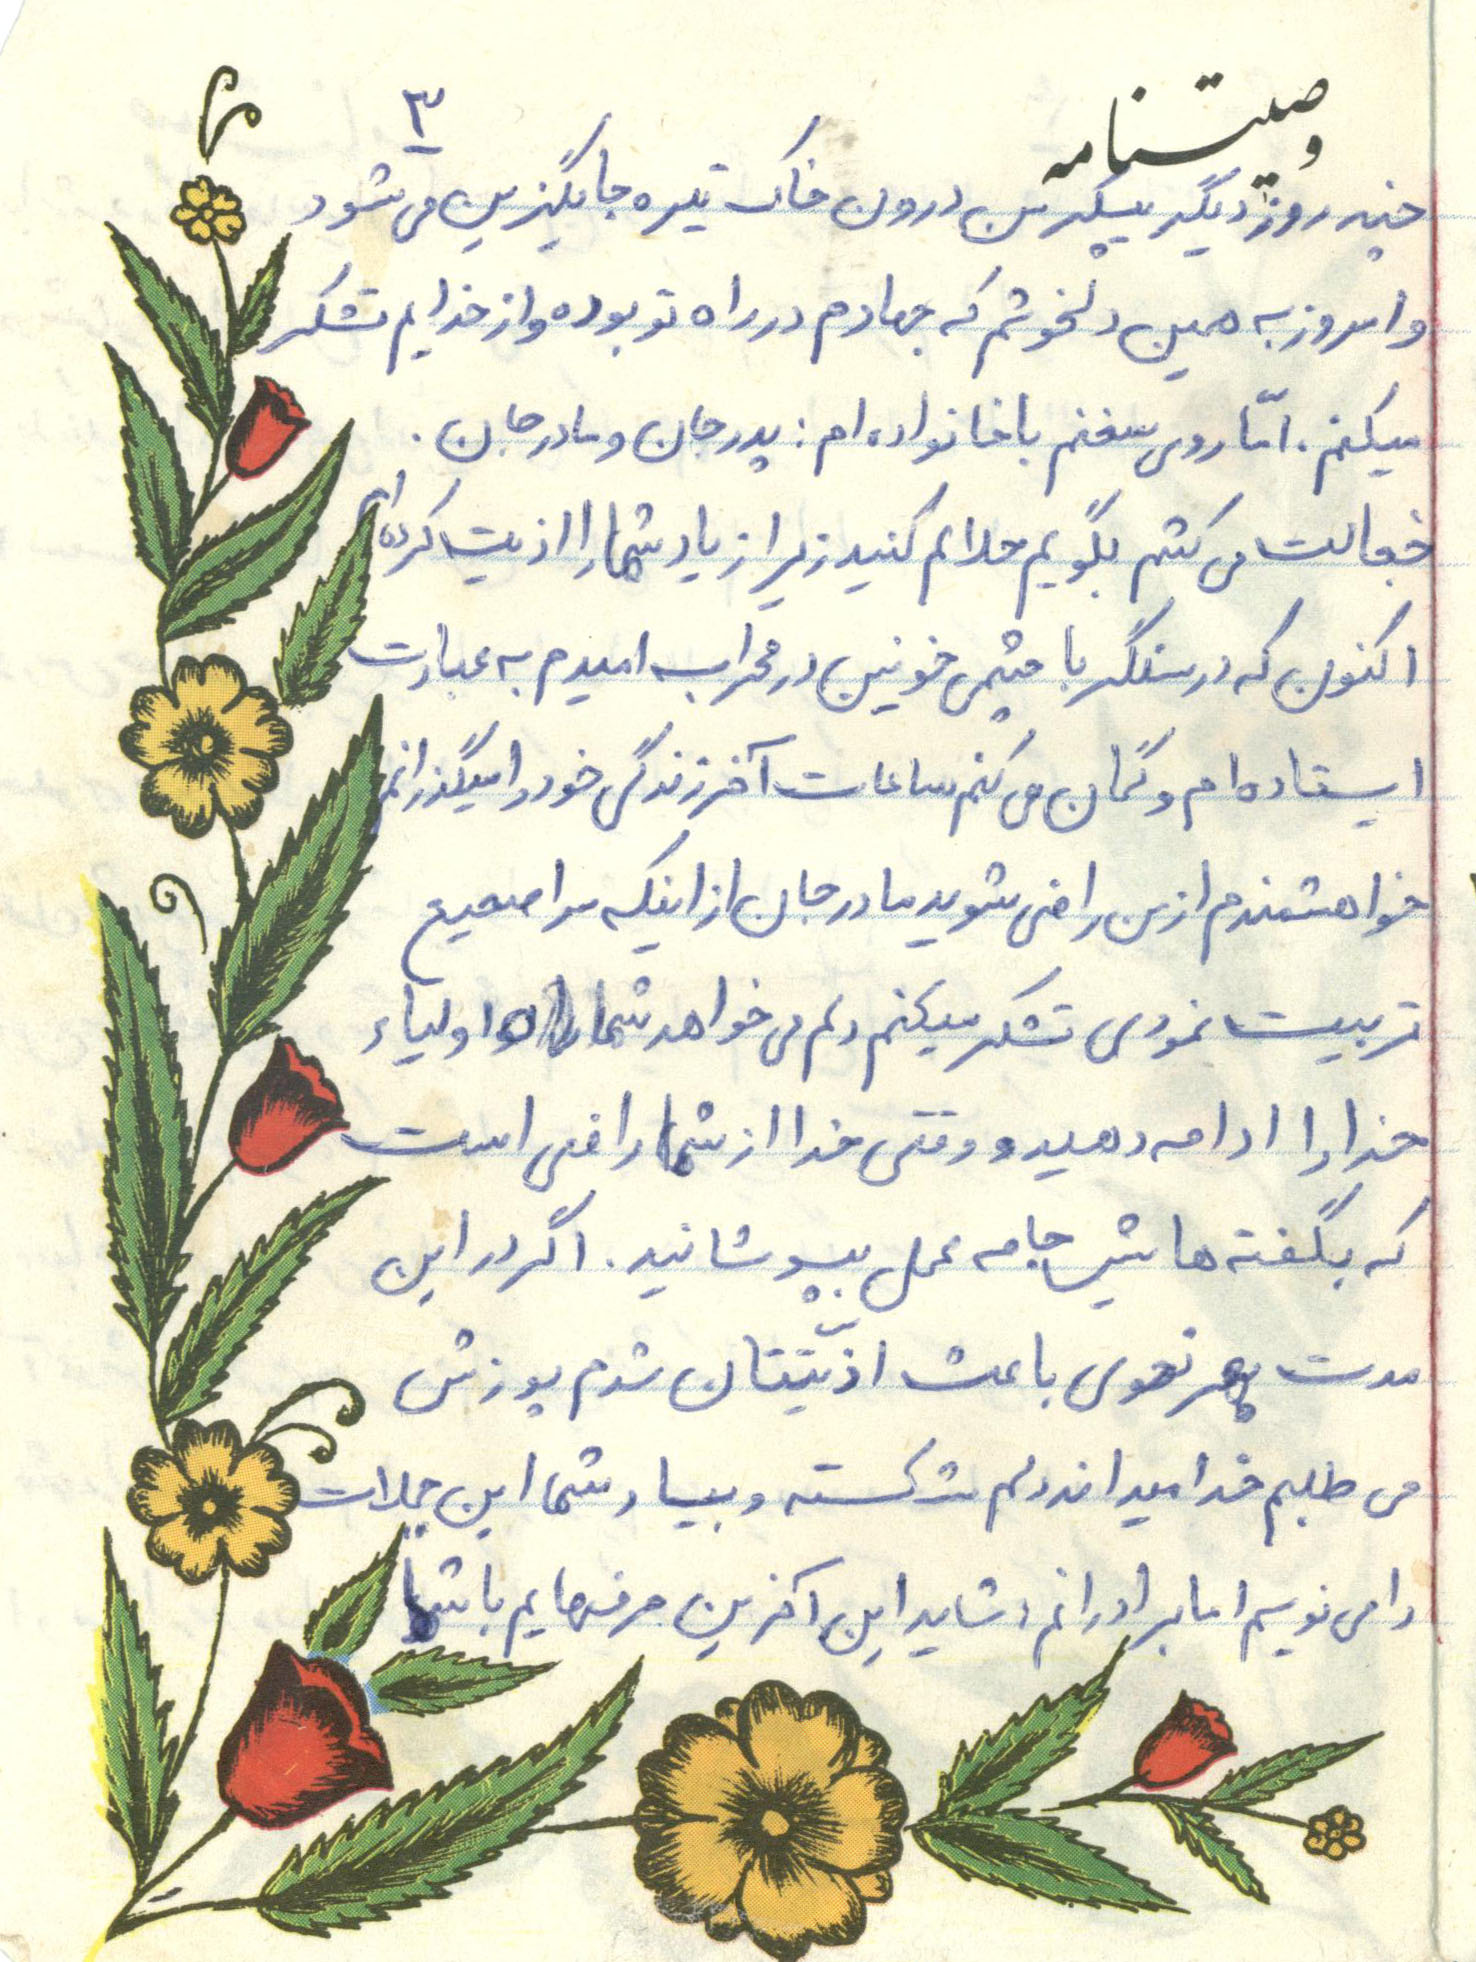 وصیتنامه
۳
چند روز دیگر پیکر من درون خاک تیره جایگزین می شود
و امروز به همین دلخوشم که جهادم در راه تو بوده و از خدایم تشکر
میکنم. امّا روی سخنم با خانواده ام: پدر جان و مادر جان.
خجالت می کشم بگویم حلالم کنید زیرا زیاد شما را اذیت کرده ام
اکنون که در سنگر با چشمی خونین در محراب امیدم به عبادت
ایستاده ام و گمان می کنم ساعات آخر زندگی خود را میگذرانم
خواهشمندم از من راضی شوید مادر جان از اینکه مرا صحیح
تربیت نمودی تشکر میکنم دلم می خواهد شما راه اولیاء
خدا را ادامه دهید و وقتی خدا از شما راضی است
که بگفته هایش جامه عمل بپوشانید. اگر در این
مدت بهر نحوی باعث اذیّتتان شدم پوزش
می طلبم خدا میداند دلم شکسته و بیاد شما این جملات
را می نویسم اما برادرانم، شاید این آخرین حرفهایم با شما